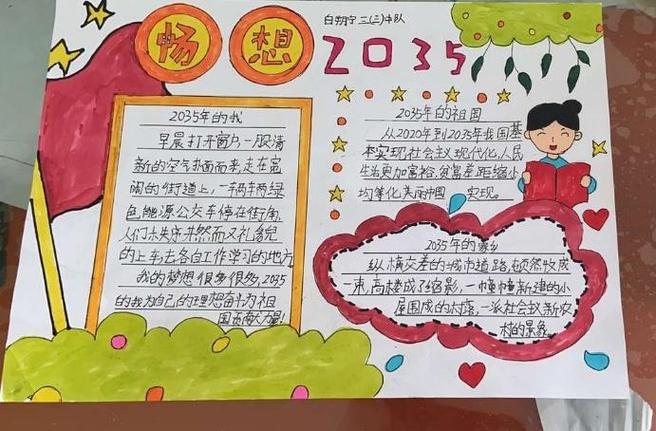 畅想2035
三(三)中队
2035年的我
早晨打开窗户一股清
新的空气扑面而来,走在宽
阔的街道上,一辆辆绿
色能源公交车停在街角,
人们井然而又礼貌
的上车,去各自工作学习的地方
我的梦想很多很多,2035
的我为自己的理想奋斗为祖
国贡献力量!
2035年的祖国
从2020年到2035年我国基
本实现社会主义现代化,人民
生活更加富裕,贫富差距缩小
均等化,美丽中国 实现。
2035年的家乡
纵横交差的城市道路,顿然收成
一束,高楼成了缩影,一幢幢新建的小
屋围成的村落,一派社会主义新农
村的景象